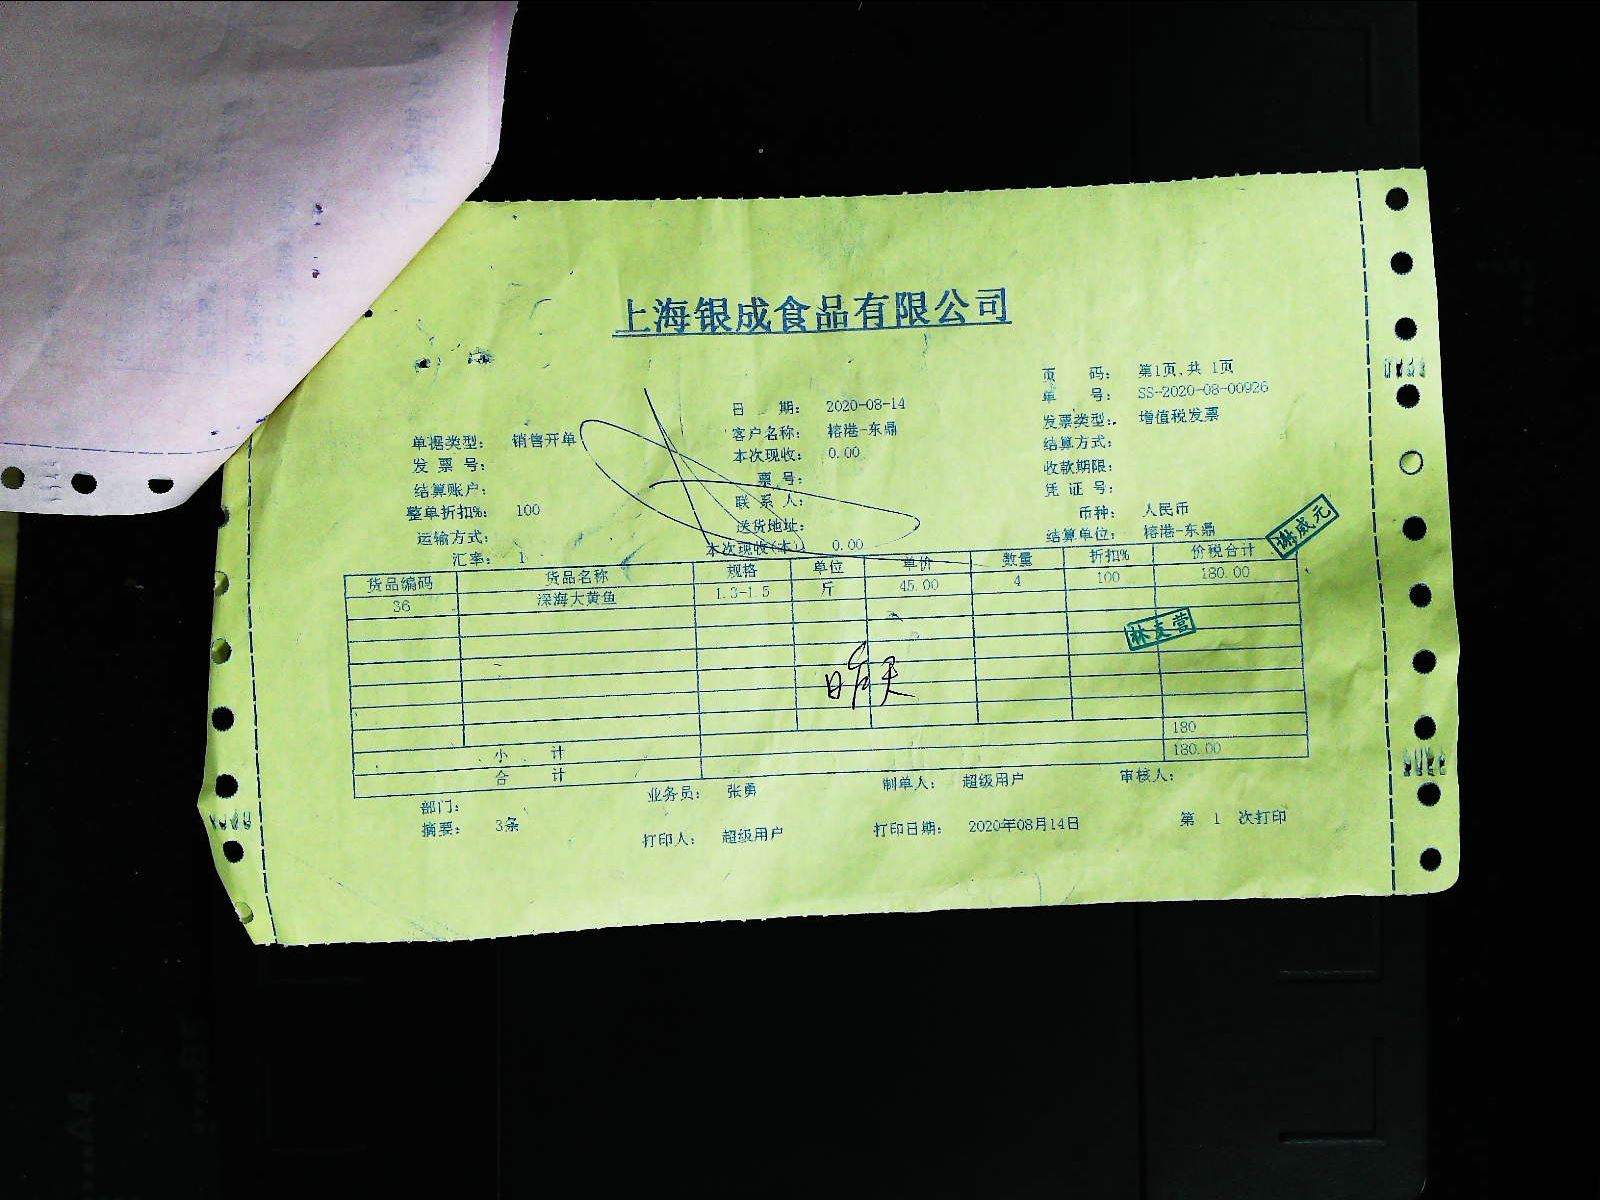 上海银成食品有限公司
页 码: 第1页,共 1页
单 号: SS-2020-08-00926
单据类型: 销售开单 日 期: 2020-08-14 发票类型: 增值税发票
发 票 号: 客户名称: 榕港-东鼎 结算方式:
结算账户: 本次现收: 0.00 收款期限:
整单折扣%: 100 票 号: 凭 证 号:
运输方式: 联 系 人: 币种: 人民币
汇率: 1 送货地址: 结算单位: 榕港-东鼎
本次现收(本) 0.00
谢威元
货品编码 货品名称 规格 单位 单价 数量 折扣% 价税合计
36 深海大黄鱼 1.3-1.5 斤 45.00 4 100 180.00
林支营
昨天
小 计 180
合 计 180.00
部门: 业务员: 张勇 制单人: 超级用户 审核人:
摘要: 3条 打印人: 超级用户 打印日期: 2020年08月14日 第 1 次打印